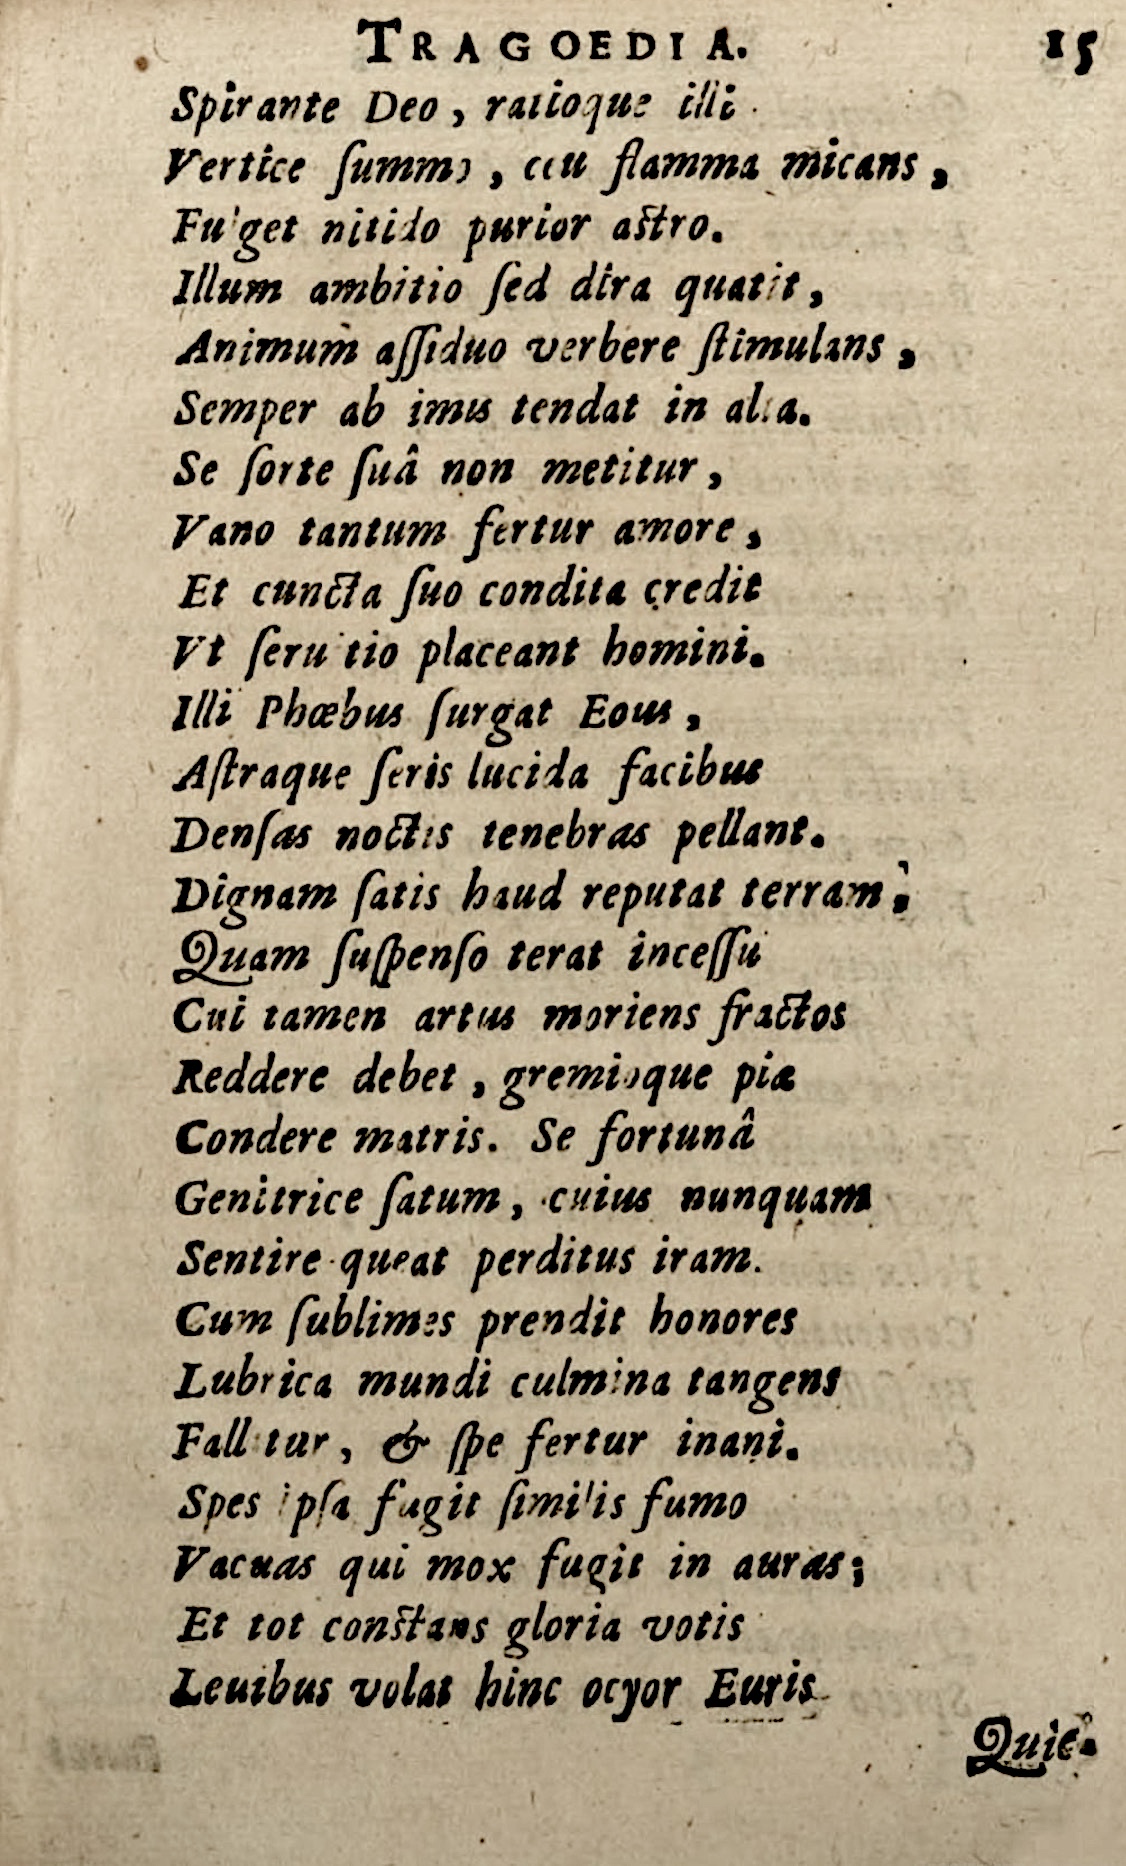 TRAGOEDIA. 15
Spirante Deo, ratioque illi
Vertice ſummo, ceu flamma micans,
Fulget nitido purior astro.
Illum ambitio ſed dira quatit,
Animum aſſiduo verbere ſtimulans,
Semper ab imis tendat in alta.
Se ſorte ſuâ non metitur,
Vano tantum fertur amore,
Et cuncta ſuo condita credit
Vt ſeruitio placeant homini.
Illi Phœbus ſurgat Eous,
Aſtraque ſeris lucida facibus
Denſas noctis tenebras pellant.
Dignam ſatis haud reputat terram,
Quam ſuſpenſo terat inceſſu
Cui tamen artus moriens fractos
Reddere debet, gremioque piæ
Condere matris. Se fortunâ
Genitrice ſatum, cuius nunquam
Sentire queat perditus iram.
Cum ſublimes prendit honores
Lubrica mundi culmina tangens
Fallitur, & ſpe fertur inani.
Spes ipſa fugit ſimilis fumo
Vacuas qui mox fugit in auras;
Et tot constans gloria votis
Leuibus volat hinc ocyor Euris
Quic-